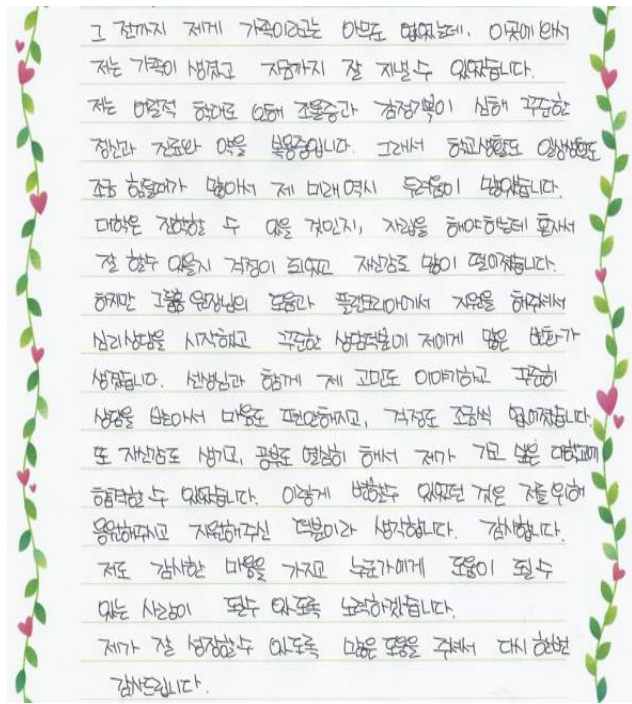 그 전까지 제게 가족이라고는 아무도 없었는데, 이곳에 와서
저는 가족이 생겼고 지금까지 잘 지낼 수 있었습니다.
저는 어릴적 학대로 인해 조울증과 감정기복이 심해 꾸준한
정신과 진료와 약을 복용중입니다. 그래서 학교생활도 일상생활도
조금 힘들때가 많아서 제 미래 역시 두려움이 많았습니다.
대학은 진학할 수 있을 것인지, 자립을 해야하는데 혼자서
잘 할수 있을지 걱정이 되었고 자신감도 많이 떨어졌습니다.
하지만 그룹홈 원장님의 도움과 플랜코리아에서 지원을 해주셔서
심리상담을 시작했고 꾸준한 상담덕분에 저에게 많은 변화가
생겼습니다. 선생님과 함께 제 고민도 이야기하고 꾸준히
상담을 받아서 마음도 편안해지고, 걱정도 조금씩 없어졌습니다.
또 자신감도 생기고, 공부도 열심히 해서 제가 가고 싶은 대학교에
합격할 수 있었습니다. 이렇게 변할수 있었던 것은 저를 위해
응원해주시고 지원해주신 덕분이라 생각합니다. 감사합니다.
저도 감사한 마음을 가지고 누군가에게 도움이 될 수
있는 사람이 될수 있도록 노력하겠습니다.
제가 잘 성장할수 있도록 많은 도움을 주셔서 다시 한번
감사드립니다.